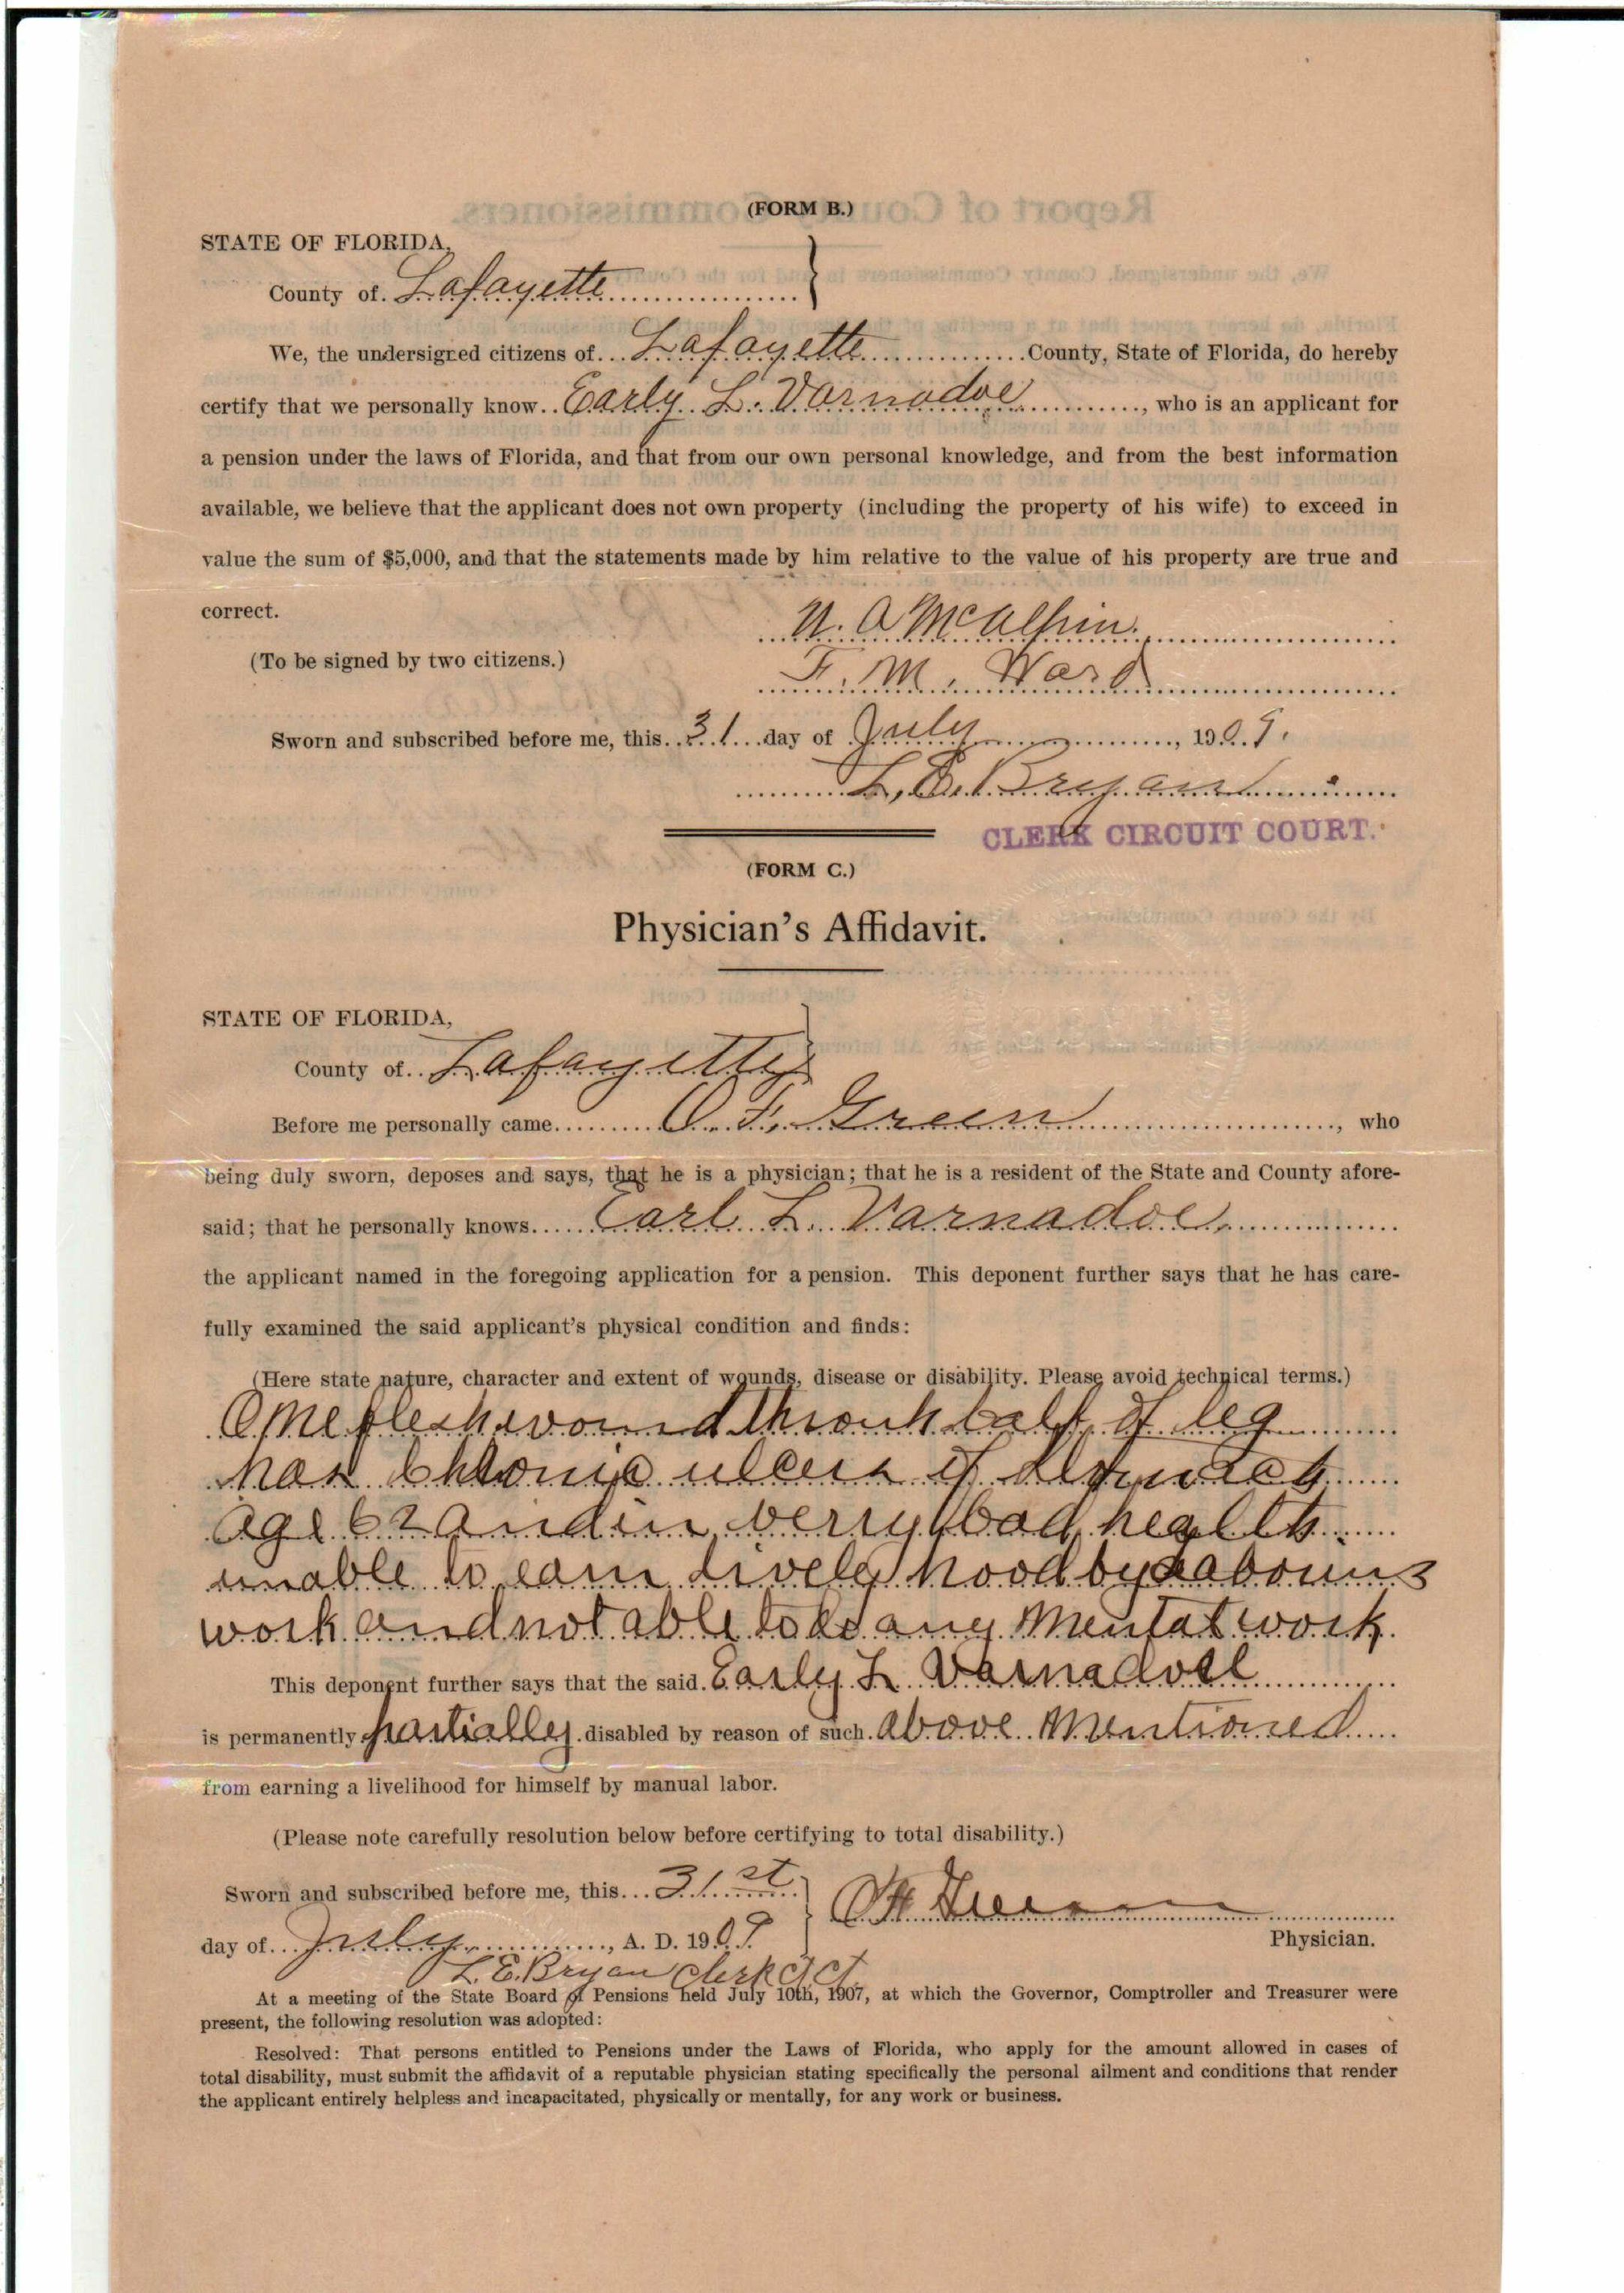 (FORM B.)
STATE OF FLORIDA,
County of Lafayette
We, the undersigned citizens of Lafayette County, State of Florida, do hereby
certify that we personally know Early L. Varnadoe, who is an applicant for
a pension under the laws of Florida, and that from our own personal knowledge, and from the best information
available, we believe that the applicant does not own property (including the property of his wife) to exceed in
value the sum of $5,000, and that the statements made by him relative to the value of his property are true and
correct.
McAlpin
(To be signed by two citizens.)
F. M. Ward
Sworn and subscribed before me, this 31 day of July, 1909.
L. E. Bryan
CLERK CIRCUIT COURT.
(FORM C.)
Physician's Affidavit.
STATE OF FLORIDA,
County of Lafayette
Before me personally came O. F. Green, who
being duly sworn, deposes and says, that he is a physician; that he is a resident of the State and County afore-
said; that he personally knows Earl L. Varnadoe
the applicant named in the foregoing application for a pension. This deponent further says that he has care-
fully examined the said applicant's physical condition and finds:
(Here state nature, character and extent of wounds, disease or disability. Please avoid technical terms.)
One flesh wound throuh calf of leg
has chronic ulcers of
age 62 and in verry bad health
unable to earn lively hood by
work and not able to do any mental work.
This deponent further says that the said Early L.
is permanently partially disabled by reason of such above mentioned
from earning a livelihood for himself by manual labor.
(Please note carefully resolution below before certifying to total disability.)
Sworn and subscribed before me, this 31st
Green
day of July, A. D. 1909
Physician.
L. E. Bryan Clerk
At a meeting of the State Board of Pensions held July 10th, 1907, at which the Governor, Comptroller and Treasurer were
present, the following resolution was adopted:
Resolved: That persons entitled to Pensions under the Laws of Florida, who apply for the amount allowed in cases of
total disability, must submit the affidavit of a reputable physician stating specifically the personal ailment and conditions that render
the applicant entirely helpless and incapacitated, physically or mentally, for any work or business.